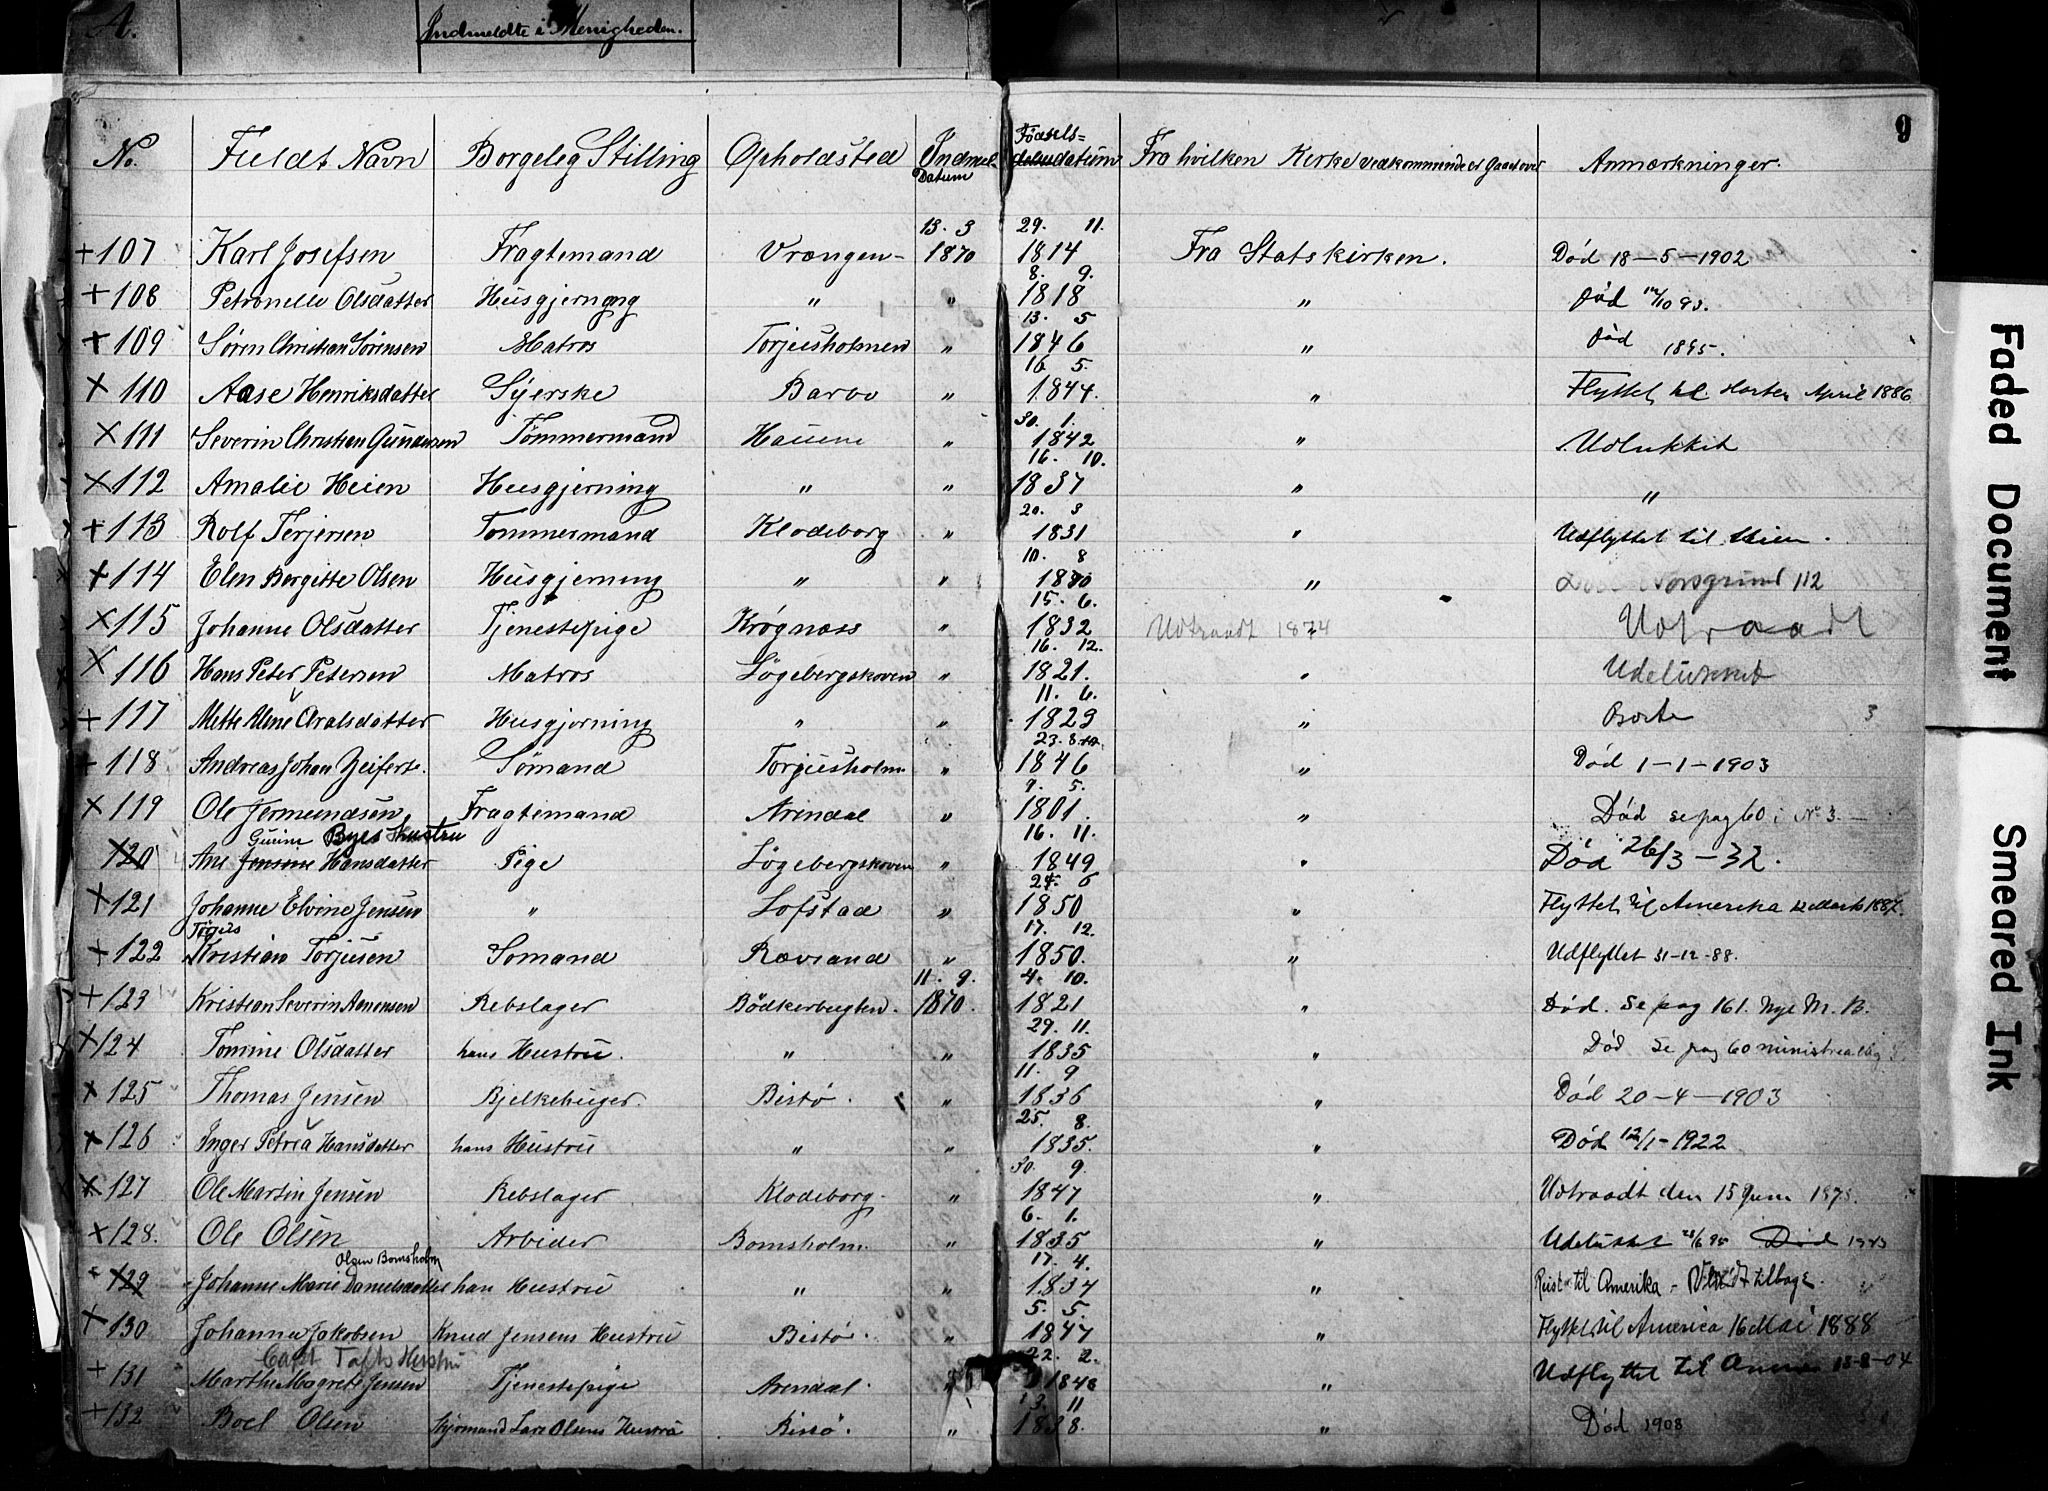 A.
Indmeldte i Menigheden.
9
No. Fuldt Navn Borgeleg Stilling Opholdsted Indmel. Datum Fødsels= datum Fra hvilken Kirke vedkommende er Gaaet over Anmærkninger.
+ 107 Karl Josefsen Fragtemand Vrængen 13. 3 1870 29. 11. 1814 Fra Statskirken. Död 18-5-1902
+ 108 Petronelle Olsdatter Husgjerning " " 8. 9. 1818 " Död 12/10 93.
+ 109 Søren Christian Sørensen Matros Torjusholmen " 13. 5 1846 " Död 1895.
X 110 Aase Henriksdatter Syerske Barbo " 16 5. 1844. " Flyttet til Horten April 1886
X 111 Severin Christian Gundersen Tømmermand Hauene " 30. 1. 1842 " Udlukket
X 112 Amalie Heien Husgjerning " " 16. 10. 1837 " "
+ 113 Rolf Terjersen Tommermand Klodeborg " 20. 3 1831 " Udflyttet til Skien.
+ 114 Elen Bergitte Olsen Husgjerning " " 10. 8 " Porsgrund 112
X 115 Johanne Olsdatter Tjenestepige Krøgnæss " 15. 6. 1832 Udtraadt 1874 " Udtraadt
X 116 Hans Peter Petersen Matros Løgebergskoven " 16. 12. 1821. " Udelukket
+ 117 Mette Aline Aralsdatter Husgjerning " " 11. 6. 1829 " Borte 3
+ 118 Andreas Johan Zeiferts. Sømand Torjusholm. " 23. 8. 1846 " Död 1-1-1903
X 119 Ole Jermundsen Fragtemand Arendal " 9. 5. 1801. " Död se pag 60 i No 3.
Gurine Byes Hustru
X 120 Ane Jensine Hansdatter Pige Løgebergskoven " 16. 11. 1849 " Död 26/3-32.
X 121 Johanne Elvine Jensen " Lofstad " 24. 6 1850 " Flyttet til Amerika 12 Marts 1887.
Torjus
+ 122 Kristian Torjusen Sømand Rævsand " 17. 12. 1850. " Udflyttet 31-12-88.
+ 123 Kristian Severin Aanensen Rebslager Bödkerbugten. 11. 9. 1870. 4. 10. 1821 " Död. Se pag 161. Nye M. B.
X 124 Tomine Olsdatter hans Hustru. " " 29. 11. 1835 " Död se pag 60 ministrealbog
X 125 Thomas Jensen Bjelkehuger. Bistø. " 11. 9 1836 " Död 20-4-1903
X 126 Inger Petrea Hansdatter hans Hustru " " 25. 8. 1835. " Död 12/1-1922
X 127 Ole Martin Jensen Rebslager Klodeborg. " 30. 9. 1847 " Udtraadt den 15 Juni 1878.
X 128. Ole Olsen Arbeider Bomsholm. " 6. 1. 1835 " Udelukket 28/6 95 Död
Olsen Bomsholm
129 Johanne Marie Danielsdatter han Hustru " " 17. 4. 1834 " Reist til Amerika - tilbage.
X 130 Johanna Jakobsen Knud Jensens Hustru Bistø. " 5. 5. 1847 " Flyttet til America 16 Mai 1888
Capt Tafts Hustru
+ 131 Marthe Magrete Jensen Tjenestepige Arendal. " 22. 2. 1848 " Udflyttet til 13-8-04
+ 132 Boel Olsen Styrmand Lars Olsens Hustru Bistø. " 13. 11 1838. " Död 1908
Faded Document
Smeared Ink